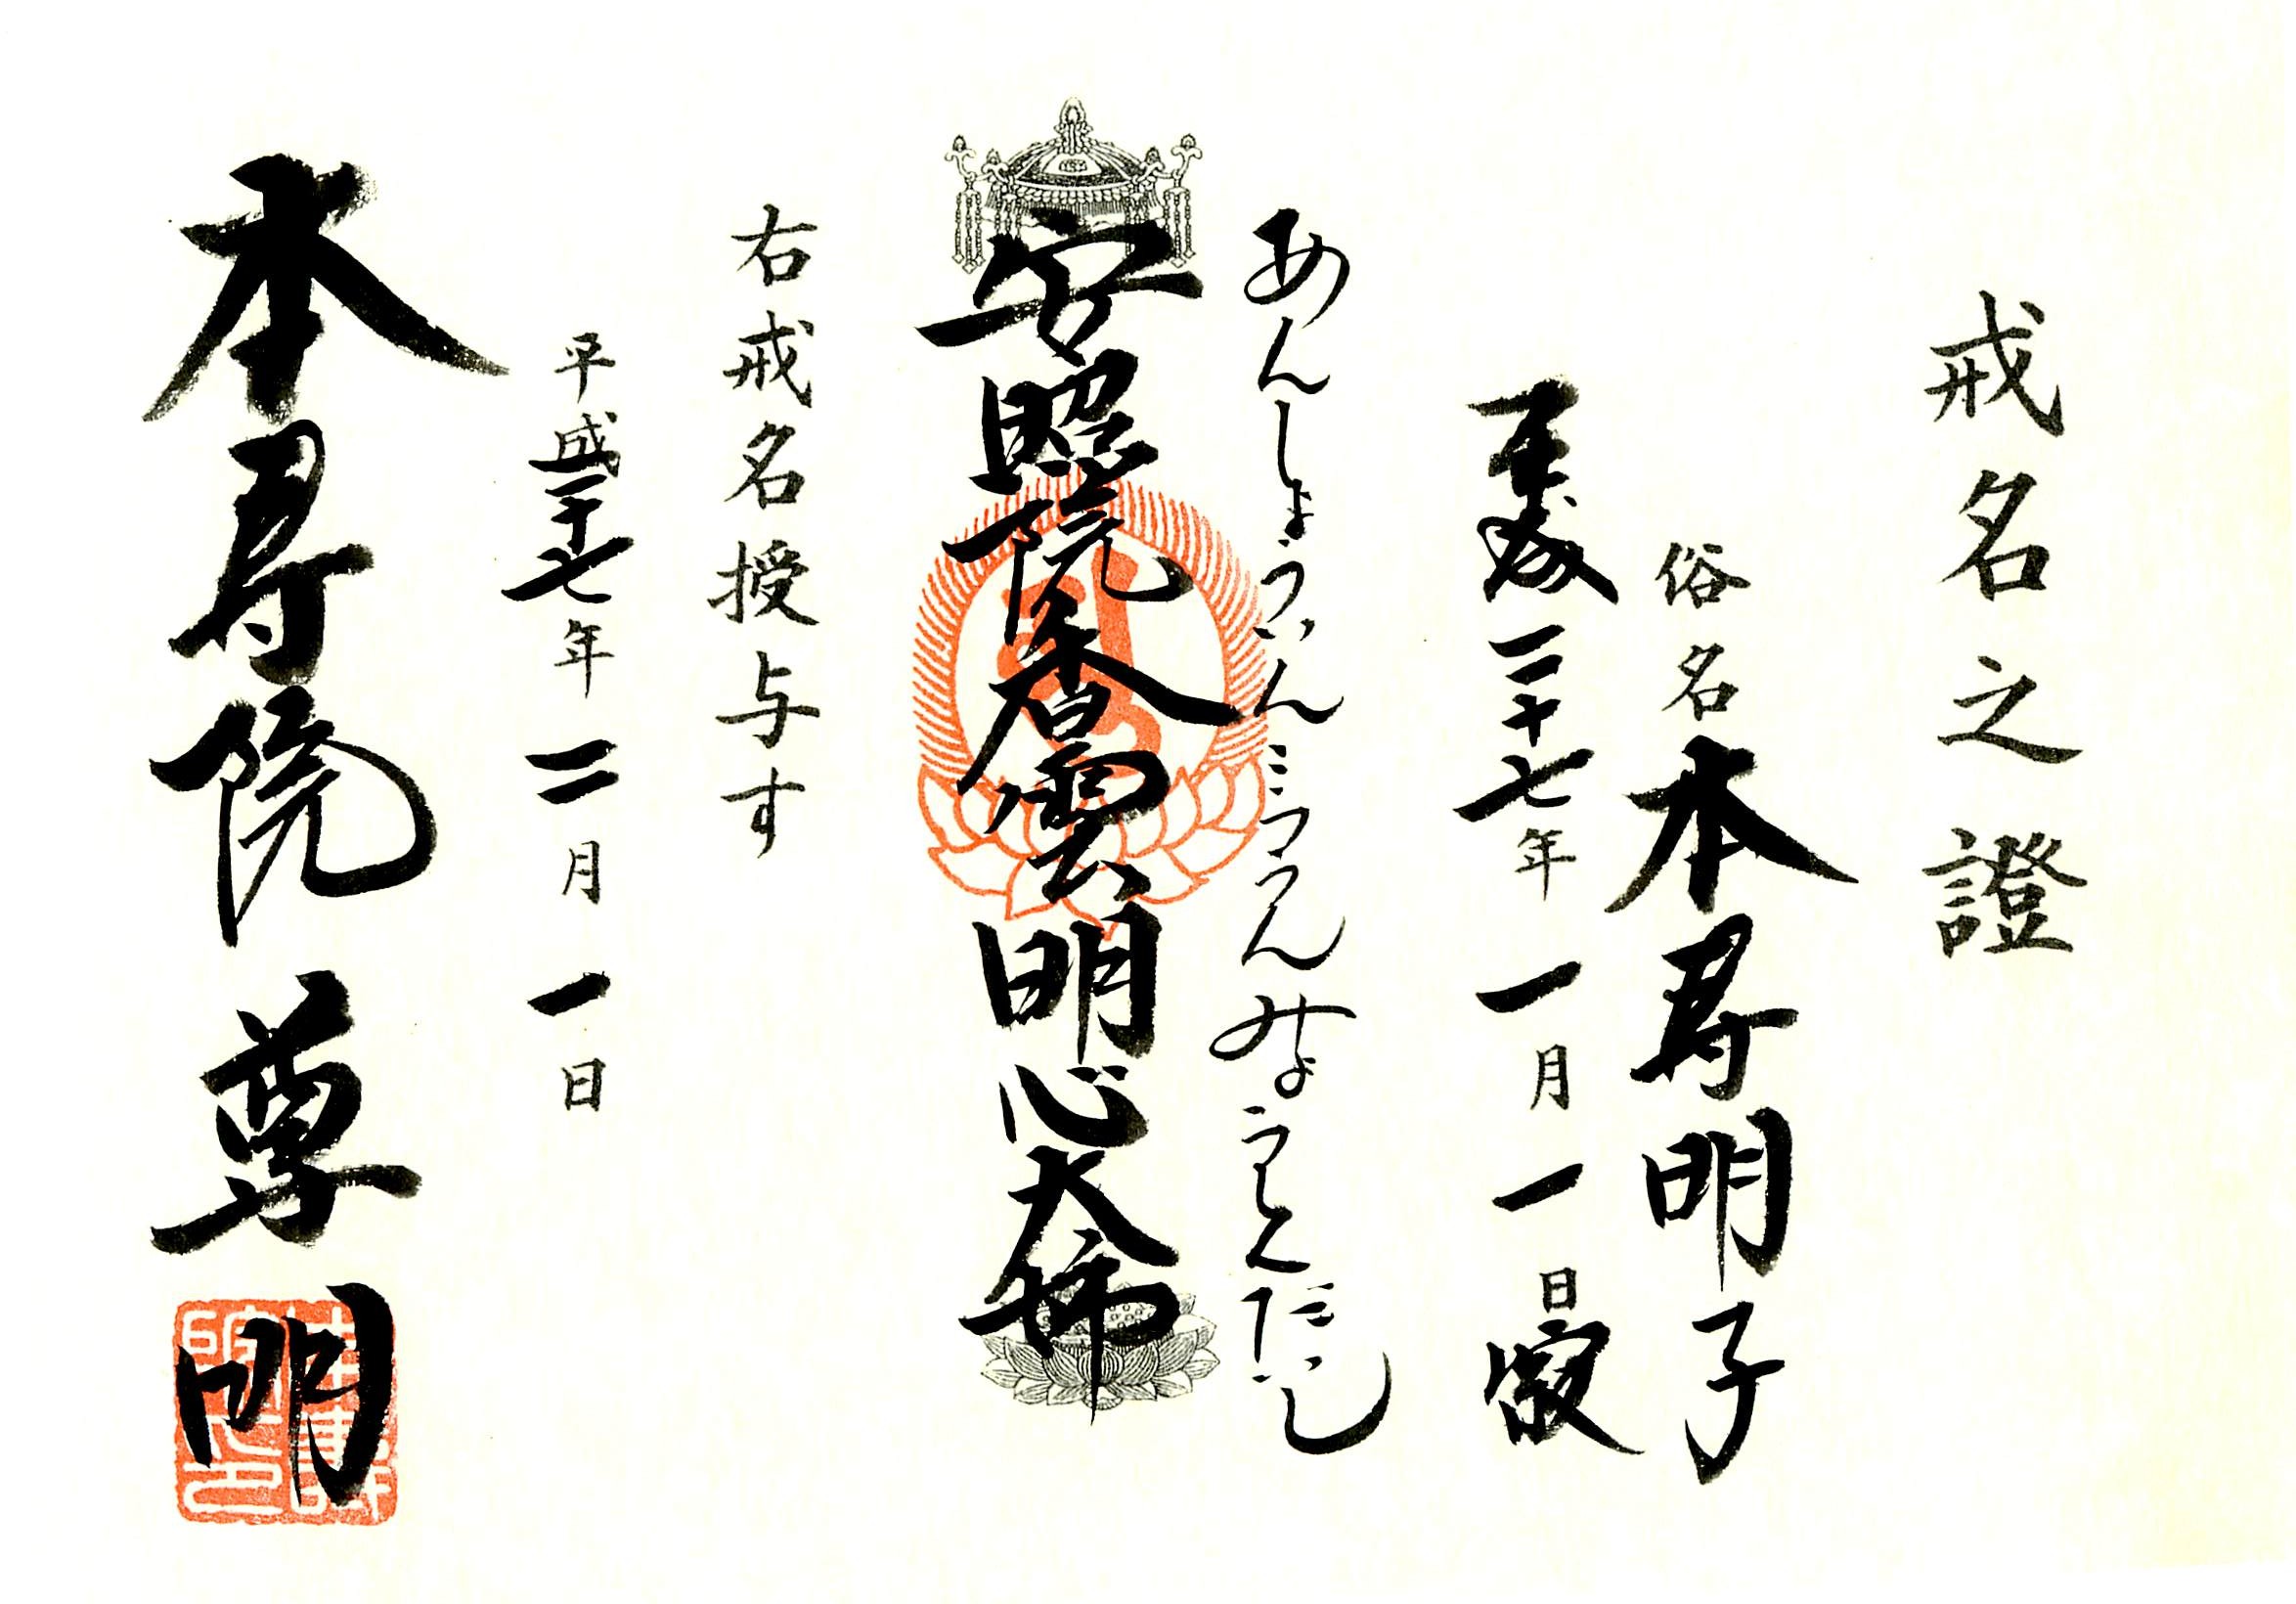 戒名之證
俗名 本尋明子
平成二十七年一月一日寂
あんしょういんこううんみょうしんだいし
安照院香雲明心大姉
右戒名授与す
平成二十七年二月一日
本尋院 尊明